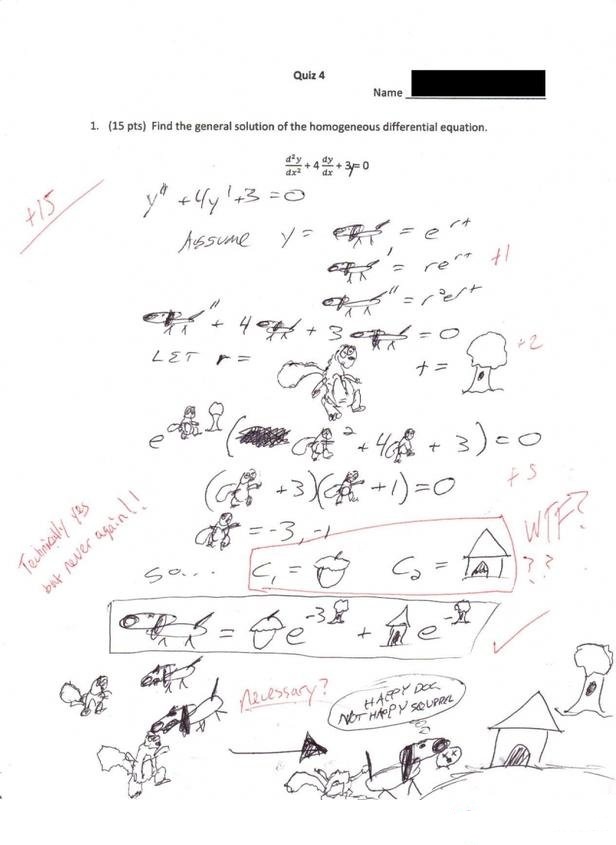 Quiz 4
Name
1. (15 pts) Find the general solution of the homogeneous differential equation.
d²y/dx² + 4 dy/dx + 3y = 0
+15
y" + 4y' + 3 = 0
Assume y = = e^rt
' = re^rt +1
" = r²e^rt
" + 4 + 3 = 0
LET r = t = +2
e ( ² + 4 + 3) = 0
( + 3)( + 1) = 0
= -3, -1
Technically yes
but never again!!
WTF?
??
so... C₁ = C₂ =
= e^-3 + e^-
Necessary?
HAPPY DOG
NOT HAPPY SQUIRREL